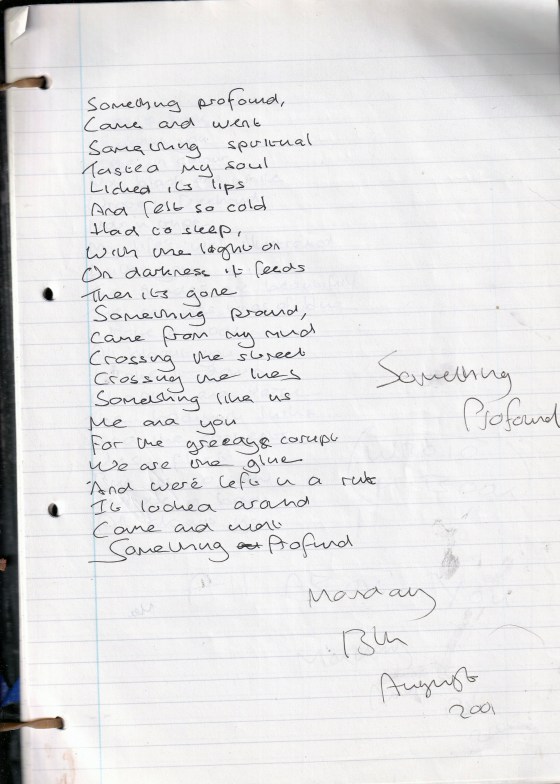 Something profound,
Came and went
Something spiritual
Tasted my soul
Licked its lips
And felt so cold
Had to sleep,
With the light on
On darkness it feeds
Then its gone
Something pround,
Came from my mind
Crossing the street
Crossing the lines
Something like us
Me and you
For the greedy & corupt
We are the glue
And were left in a rut
It looked around
Came and went
Something Profund
Something
Profound
Monday
13th
August
2001